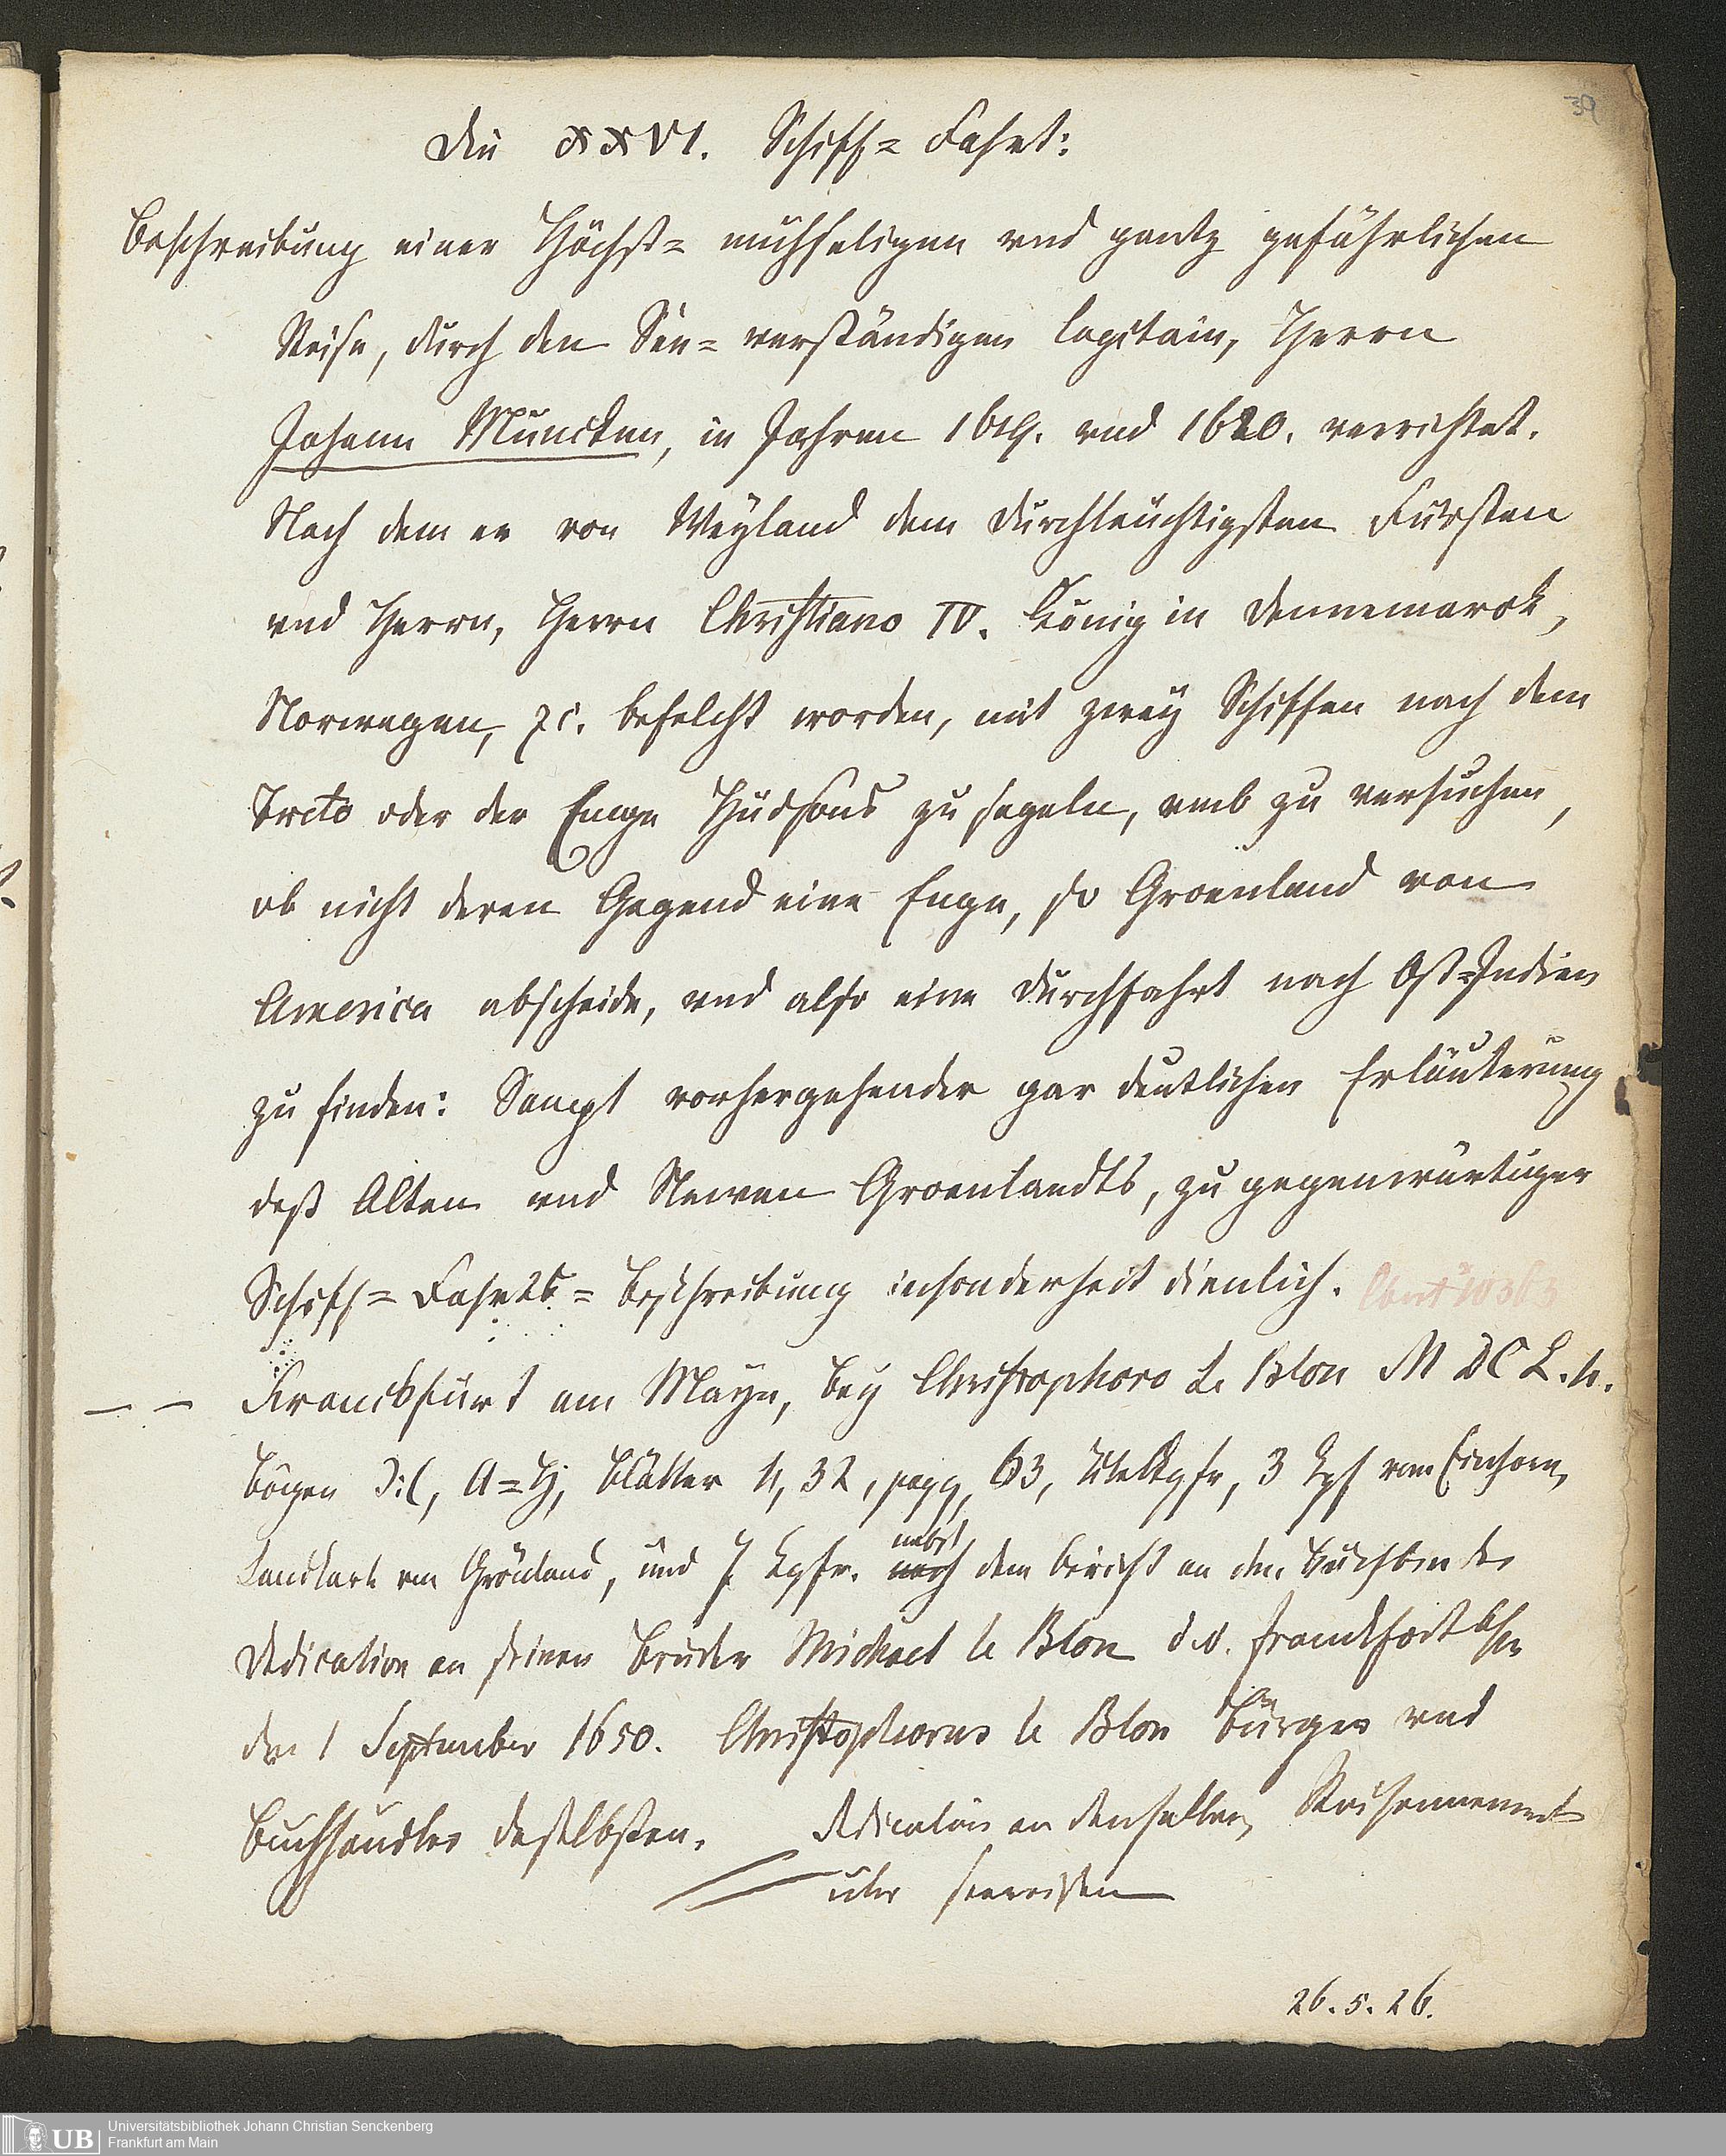 39
Die XXVI. Schiff=Fahrt:
Beschreibung einer Höchst= mühseligen vnd gantz gefährlichen
Reise, durch den See= verständigen Capitain, Herrn
Johann Müncken, in Jahren 1619. vnd 1620. verrichtet.
Nach dem er von Weyland dem Durchleuchtigsten Fürsten
vnd Herrn, Herrn Christiano IV. König in Dennemarck,
Norwegen, ꝛc. befelcht worden, mit zwey Schiffen nach dem
Freto oder der Enge Hudsons zu segeln, vmb zu versuchen,
ob nicht deren Gegend eine Enge, so Groenland von
America abscheide, vnd also eine Durchfahrt nach Ost=Indien
zu finden: Sampt vorhergehender gar deutlichen Erläuterung
deß Alten vnd Newen Groenlandts, zu gegenwärtiger
Schiff=Fahrts=Beschreibung insonderheit dienlich.
— — Franckfurt am Mayn, bey Christophoro Le Blon MDCL. 4.
Bogen ):(, A=H, Blätter 4, 32, pagg, 63, Titelkpfr, 3 Kpf vom Einhorn,
Landkarte von Grönland, und Kpfr. nebst
nach dem Bericht an den Buchbinder
Dedication an seinen Bruder Michael le Blon d.d. Franckfort
den 1 September 1650. Christophorus le Blon Bürger vnd
Buchhändler daselbsten. Dedication an denselben,
über
26. 5. 26.
Universitätsbibliothek Johann Christian Senckenberg
UB Frankfurt am Main